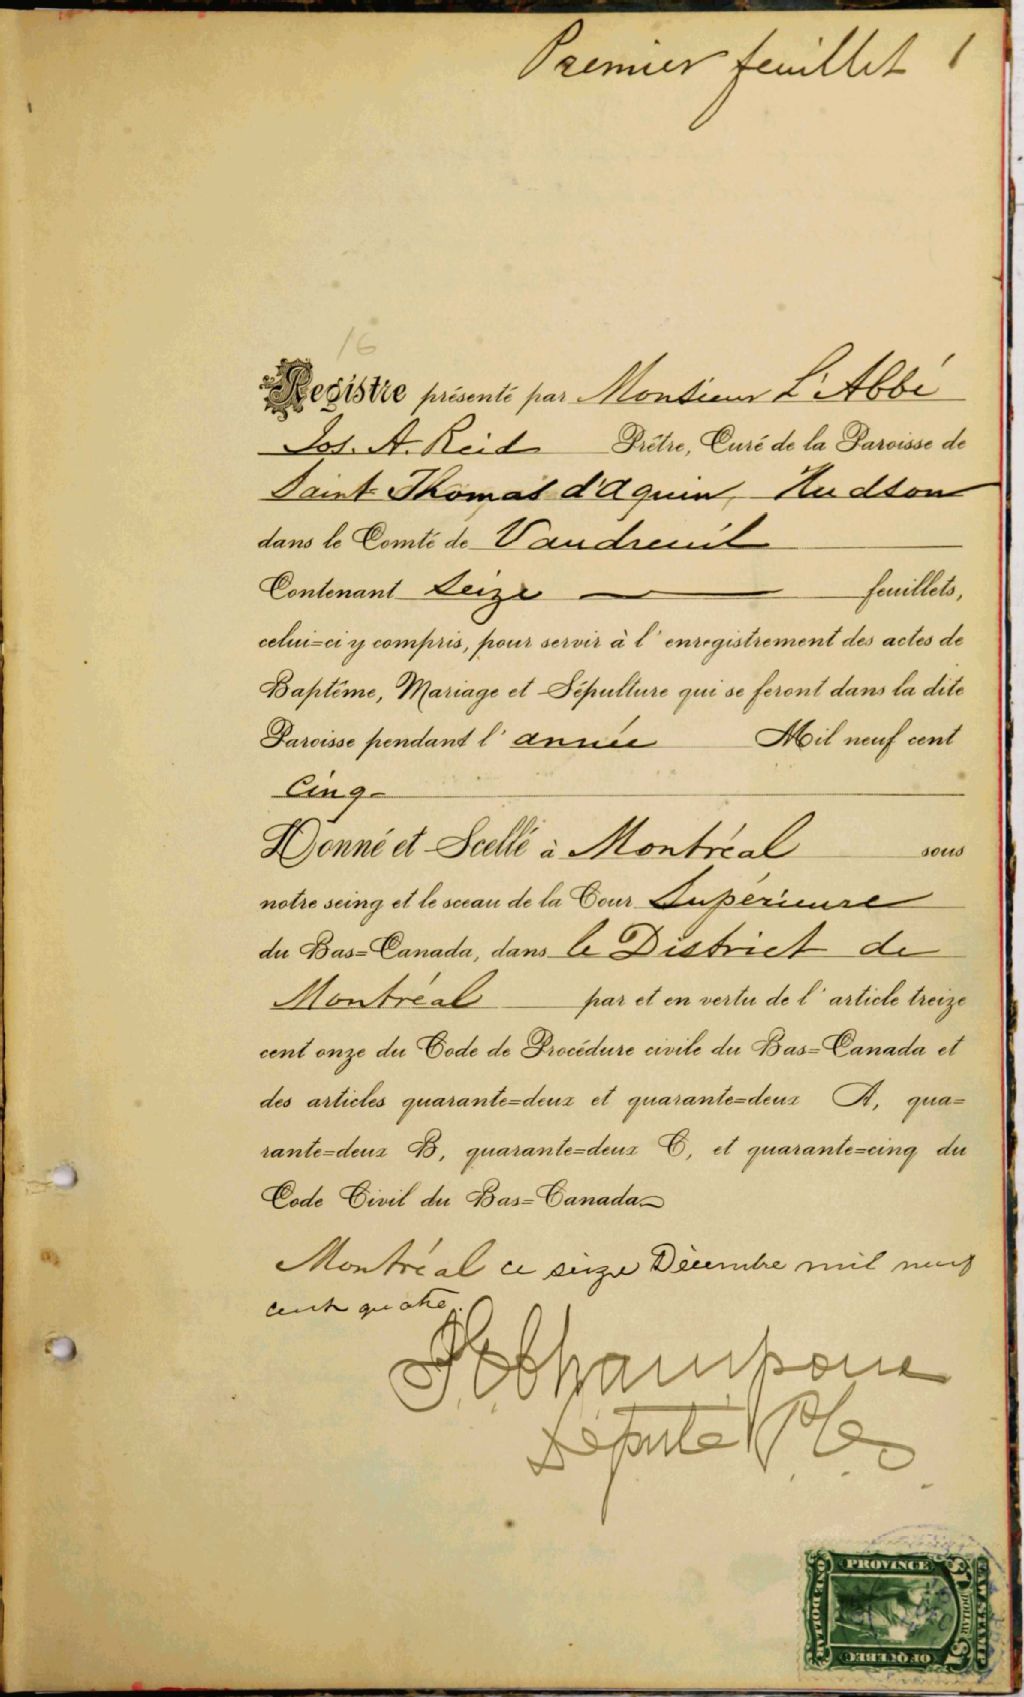 Premier feuillet 1
16
Registre présenté par Monsieur L'Abbé
Jos. A. Reid Prêtre, Curé de la Paroisse de
Saint Thomas d'Aquin, Hudson
dans le Comté de Vaudreuil
Contenant seize feuillets,
celui=ci y compris, pour servir à l'enregistrement des actes de
Baptême, Mariage et Sépulture qui se feront dans la dite
Paroisse pendant l'année Mil neuf cent
cinq
Donné et Scellé à Montréal sous
notre seing et le sceau de la Cour Supérieure
du Bas=Canada, dans le District de
Montréal par et en vertu de l'article treize
cent onze du Code de Procédure civile du Bas=Canada et
des articles quarante=deux et quarante=deux A, qua=
rante=deux B, quarante=deux C, et quarante=cinq du
Code Civil du Bas=Canada
Montréal ce seize Décembre mil neuf
cent quatre.
Champoux
Député P.C.S.
PROVINCE
OF QUEBEC
ONE DOLLAR
LAW STAMP
$1 DOLLAR $1